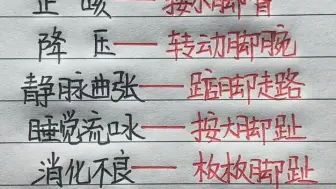 止咳一按小脚背
降压一转动脚腕
静脉曲张一踮脚走路
睡觉流口水一按大脚趾
消化不良一板板脚趾